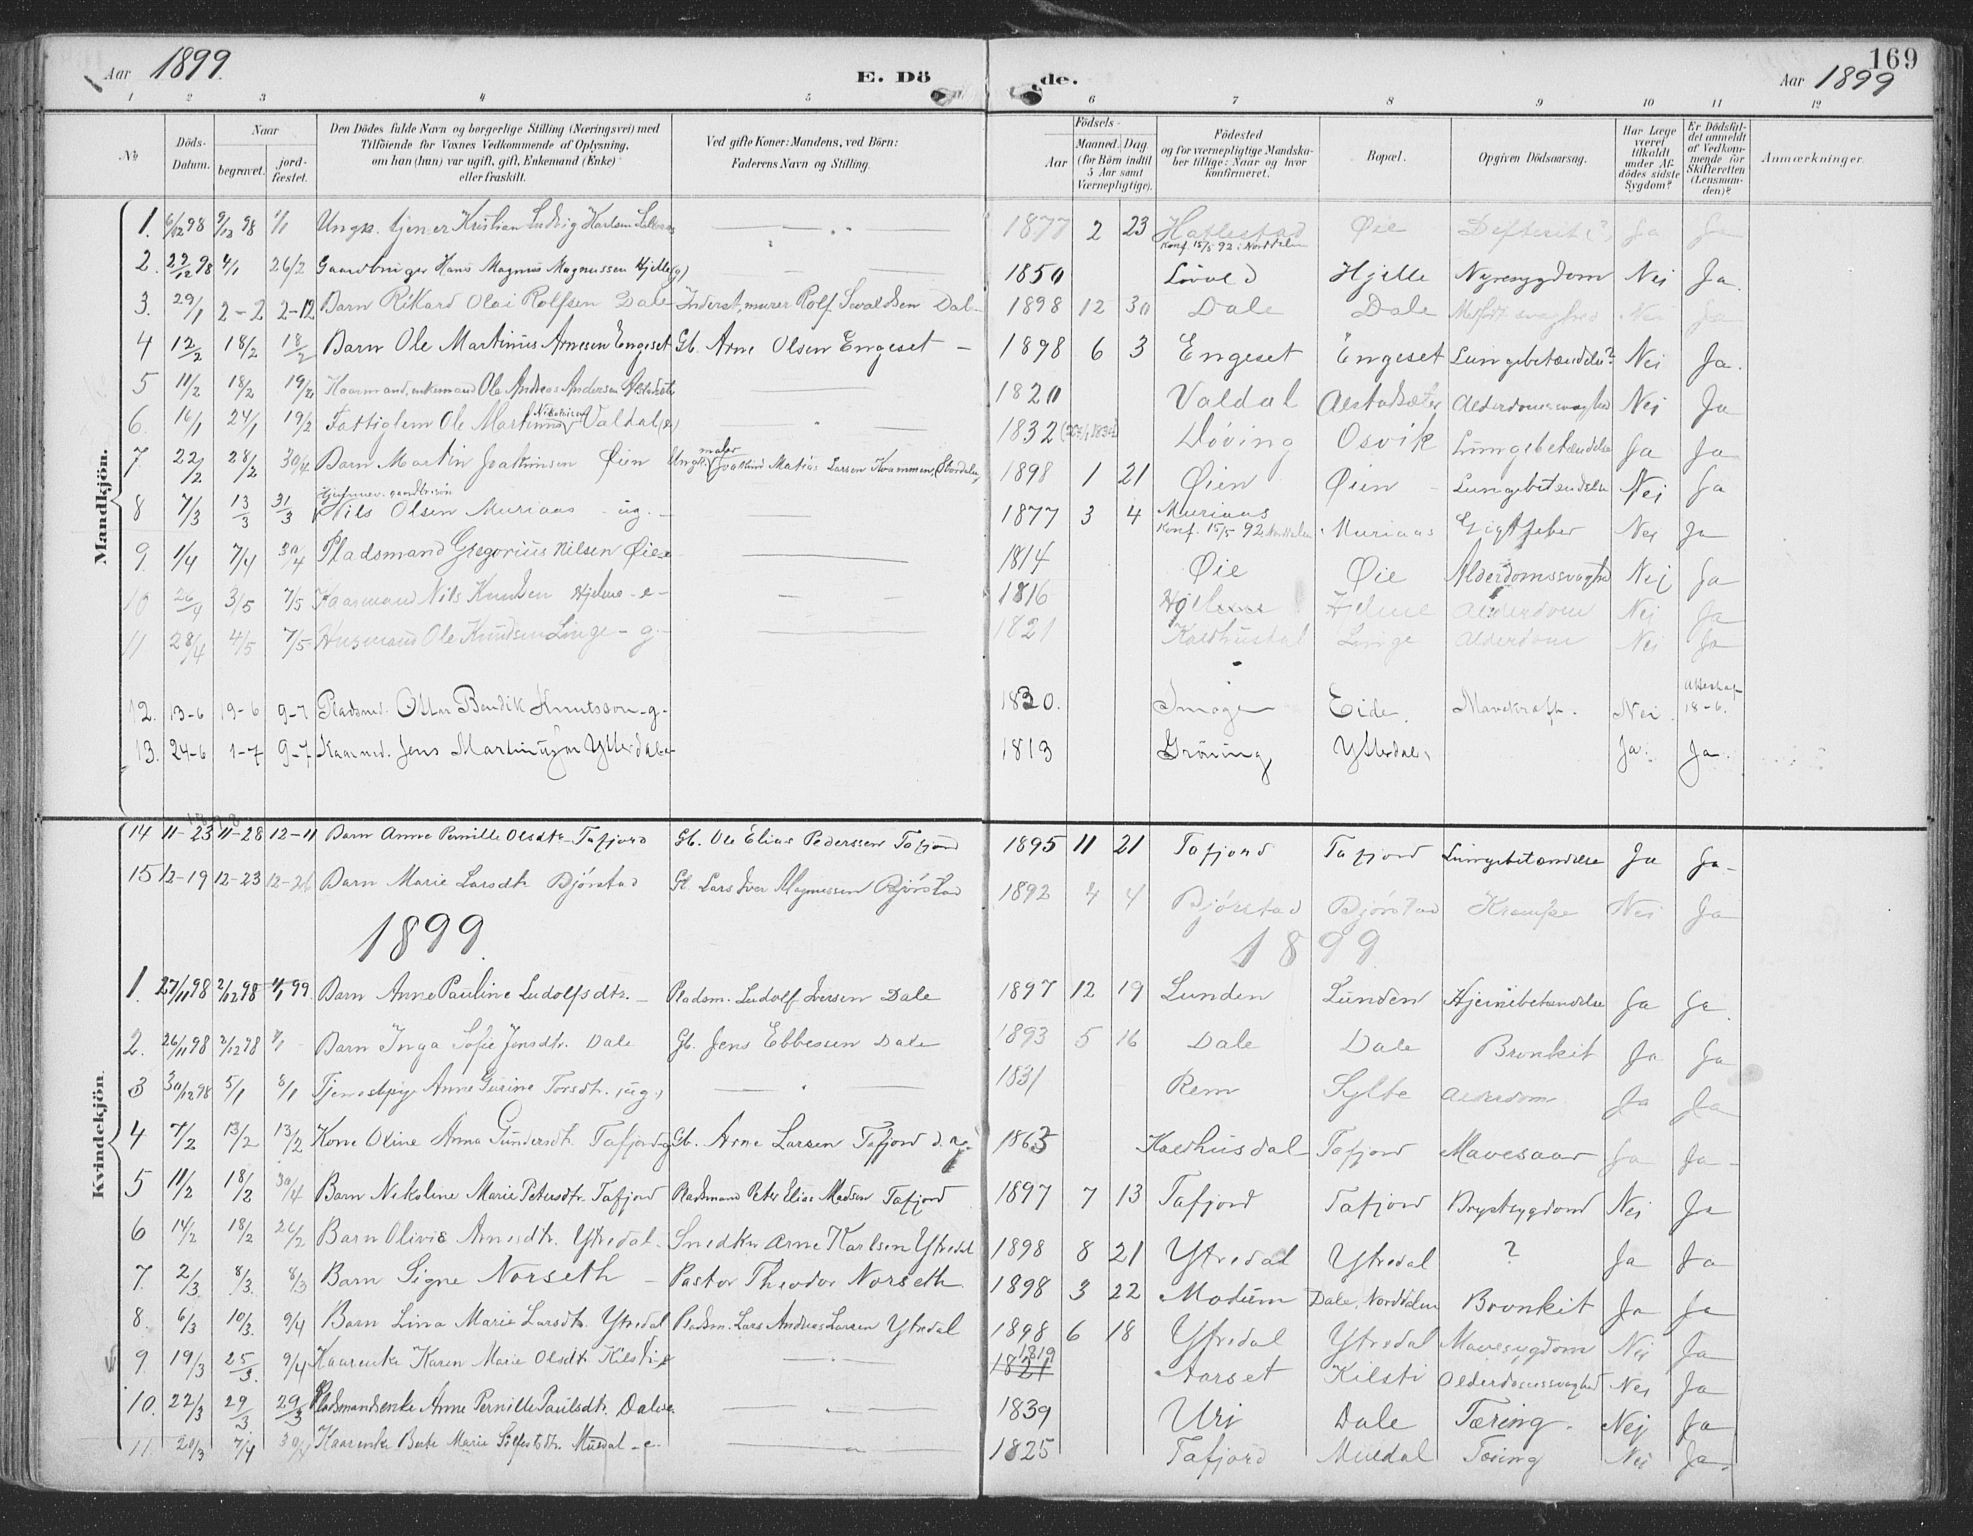 169
Aar 1899. E. Dö de. Aar 1899
1 2 3 4 5 6 7 8 9 10 11 12
№ Döds-Datum. Naar begravet. jordfæstet. Den Dödes fulde Navn og borgerlige Stilling (Næringsvei) med Tilföiende for Voxnes Vedkommende af Oplysning, om han (hun) var ugift, gift, Enkemand (Enke) eller fraskilt. Ved gifte Koner: Mandens, ved Börn: Faderens Navn og Stilling. Födsels- Aar Maaned. Dag (for Börn indtil 5 Aar samt Værnepligtige). Födested og for værnepligtige Mandskaber tillige: Naar og hvor konfirmeret. Bopæl. Opgiven Dödsaarsag. Har Læge været tilkaldt under Afdödes sidste Sygdom? Er Dödsfaldet anmeldt af Vedkommende for Skifteretten (Lensmanden)? Anmærkninger.
Mandkjön.
1. 6/12 98 9/12 98 1/1 Ungk. tjener Kristian Ludvig Karlsen 1877 2 23 Hatlestad Konf. 15/5 92 i Norddalen Øie Difterit(?) Ja Ja
2. 29/12 98 4/1 26/2 Gaardbruger Hans Magnus Magnussen Hjelle (g) 1850 Løvold Hjelle Nyresygdom Nei Ja.
3. 29/1 2-2 2-12 Barn Rikard Olai Rolfsen Dale Inderst, murer Rolf Sivaldsen Dale 1898 12 30 Dale Dale Medfødt svaghed Nei Ja
4 12/2 18/2 18/2 Barn Ole Martinus Arnesen Engeset Gb. Arne Olsen Engeset — 1898 6 3 Engeset Engeset Lungebetændelse? Nei Ja.
5 11/2 18/2 19/2 Kaarmand, enkemand Ole Andreas Andersen Alstadsæter 1820 Valdal Alstadsæter Alderdomssvaghed Nei Ja
6. 16/1 24/1 19/2 Fattiglem Ole Martinus Nikolaisen Valdal (e) 1832 Døving Osvik Lungebetændelse Ja Ja
7 22/2 28/2 30/4 Barn Martin Joakimsen Øien Ungk. maler Joakim Matias Larsen Kvammen, Stordalen 1898 1 21 Øien Øien Lungebetændelse Nei Ja
8 7/3 13/3 31/3 Hjemmev. gaardbrsøn Nils Olsen Muriaas - ug. - 1877 3 4 Muriaas Konf. 15/5 92 Norddalen Muriaas Gigtfeber Nei Ja
9. 1/4 7/4 30/4 Pladsmand Gregorius Nilsen Øie-e 1814 Øie Øie Alderdomssvaghed Nej Ja
10 26/4 3/5 7/5 Kaarmand Nils Knudsen Hjelme -e- 1816 Hjelme Hjelme Alderdom Nei Ja
11 28/4 4/5 7/5 Husmand Ole Knudsen Linge - g. - 1821 Kaldhusdal Linge Alderdom Nei Ja
12. 13-6 19-6 9-7 Pladsmd. Ottar Bendik Knutsson -g- 1830. Smoge Eide. Mavekraft. Nei. 18-6.
13. 24-6 1-7 9-7 Kaarmd. Jens Martinussen Ytterdal -e- 1813 Grøning Ytterdal, Ja. Ja.
Kvindekjön.
1898
14 11-23 11-28 12-11 Barn Anne Pernille Olsdtr. Tafjord Gb. Ole Elias Pederssen Tafjord 1895 11 21 Tafjord Tafjord Lungebetændelse Ja Ja-
15 12-19 12-23 12-26 Barn Marie Larsdtr Bjørstad Gb. Lars Iver Magnussen Bjørstad 1892 4 4 Bjørstad Bjørstad Krampe Nei Ja
1899. 1899
1. 27/11 98 2/12 98 1/1 99 Barn Anne Pauline Ludolfsdtr. — Pladsm. Ludolf Iversen Dale 1897 12 19 Lunden Lunden Hjernebetændelse Ja Ja.
2. 26/11 98 2/12 98 1/1 Barn Inga Sofie Jensdtr. Dale Gb. Jens Ebbesen Dale 1893 5 16 Dale Dale Bronkit Ja Ja
3 30/12 98 5/1 8/1 Tjenestepige Anne Gurine Torsdtr. (ug.) 1831 Rem Sylte Alderdom Ja Ja
4 7/2 13/2 13/2 Kone Oline Anna Gundersdtr. Tafjord g Gb. Arne Larsen Tafjord d. y. 1863 Kaldhusdal Tafjord Mavesaar Ja Ja-
5 11/2 18/2 30/4 Barn Nikoline Marie Petersdtr. Tafjord Pladsmand Peter Elias Madsen Tafjord 1897 7 13 Tafjord Tafjord Brystsygdom Nei Ja
6 14/2 18/2 26/2 Barn Olivia Arnesdtr. Ytredal - Snedker Arne Karlsen Ytredal 1898 8 21 Ytredal Ytredal ? Ja Ja
7. 2/3 8/3. 8/3 Barn Signe Norseth — Pastor Theodor Norseth. 1898 3 22 Modum Dale, Norddalen Bronkit Ja Ja
8. 6/3 10/3. 9/4 Barn Lina Marie Larsdtr. Ytredal Pladsm. Lars Andreas Larsen Ytredal 1898 6 18 Ytredal Ytredal Mavesygdom Nei Ja
9. 19/3 25/3. 9/4 Kaarenke Karen Marie Olsdtr Kilsti-e 1821 1819 Aarset Kilsti Alderdomssvaghed Nei Ja
10. 22/3 29/3 29/3 Pladsmandsenke Anne Pernille Paulsdtr. Dale-e 1839 Uri Dale Tæring. Nej Ja
11. 20/3 7/4 30/4 Kaarenke Berte Marie Sylfestsdtr. Muldal -e- 1825 Tafjord Muldal Tæring Nei Ja.